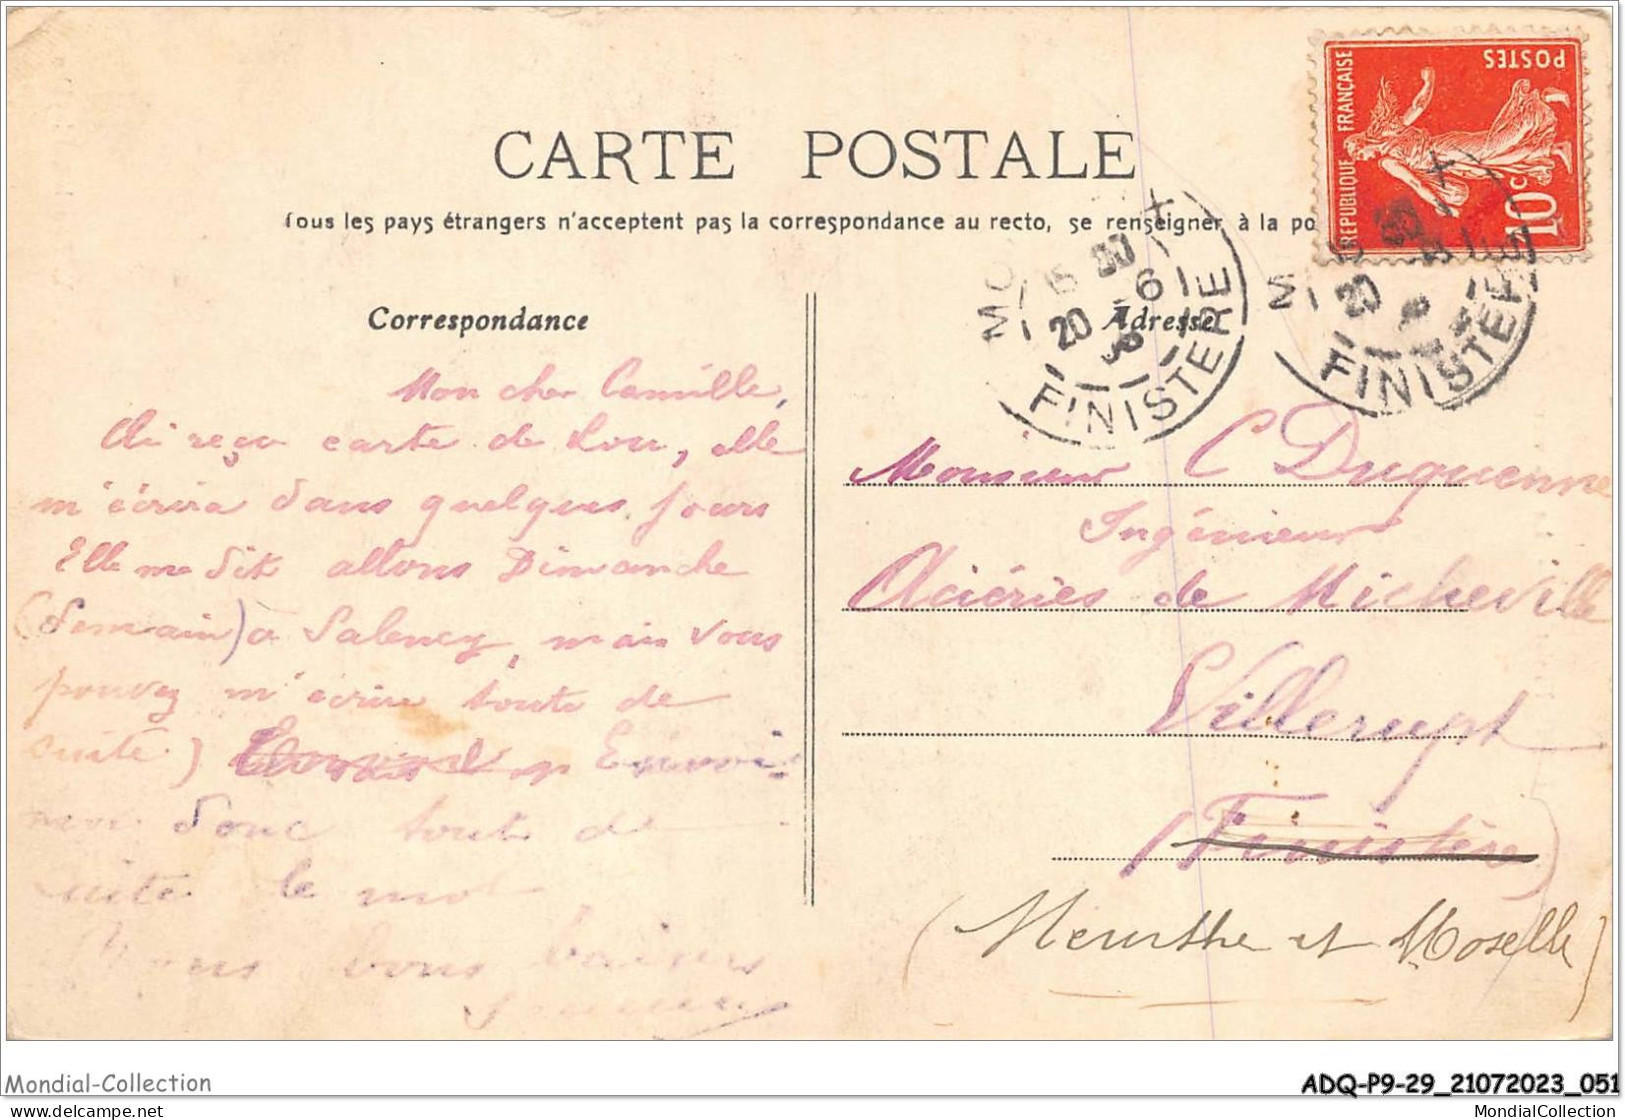 CARTE POSTALE
Tous les pays étrangers n'acceptent pas la correspondance au recto, se renseigner à la po
REPUBLIQUE FRANÇAISE
POSTES
10c
Correspondance
Adresse
MO X
20 6
FINISTERE
M X
20
FINISTERE
Mon cher Camille,
Ai reçu carte de Lou, elle
m'écrira dans quelques jours
Elle me dit allons Dimanche
(demain) à Salency, mais vous
pouvez m'écrire toute de
suite)
Envoi
moi donc tout de
suite le mot
Nous vous baisons
Monsieur C Duquenne
Ingénieur
Aciéries de Micheville
Villerupt
(Finistère)
(Meurthe et Moselle)
Mondial-Collection
ADQ-P9-29_21072023_051
www.delcampe.net
MondialCollection